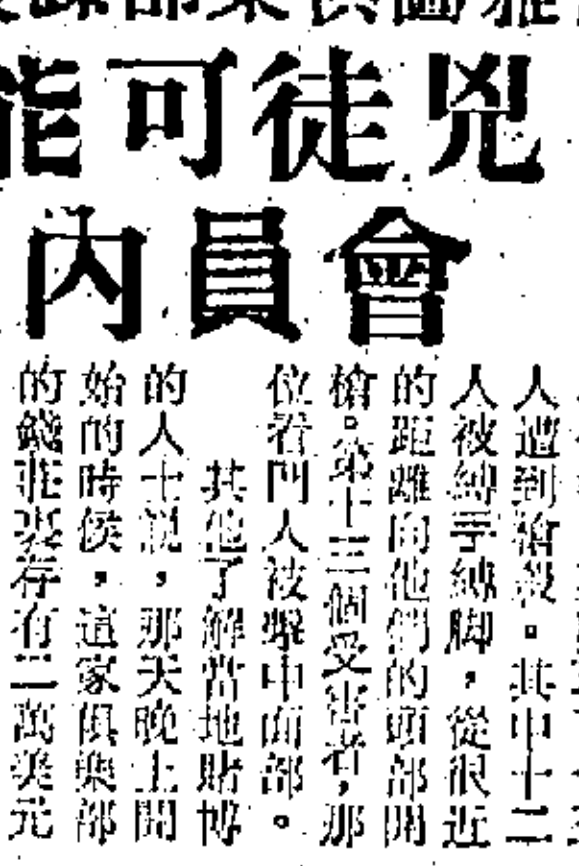 兇徒可能
會員內
人遭到槍殺。其中十二
人被縛手縛脚，從很近
的距離向他們的頭部開
槍。第十三個受害者，那
位看門人被擊中面部。
其他了解當地賭博
的人士說，那天晚上開
始的時侯，這家俱樂部
的錢莊裏存有二萬美元